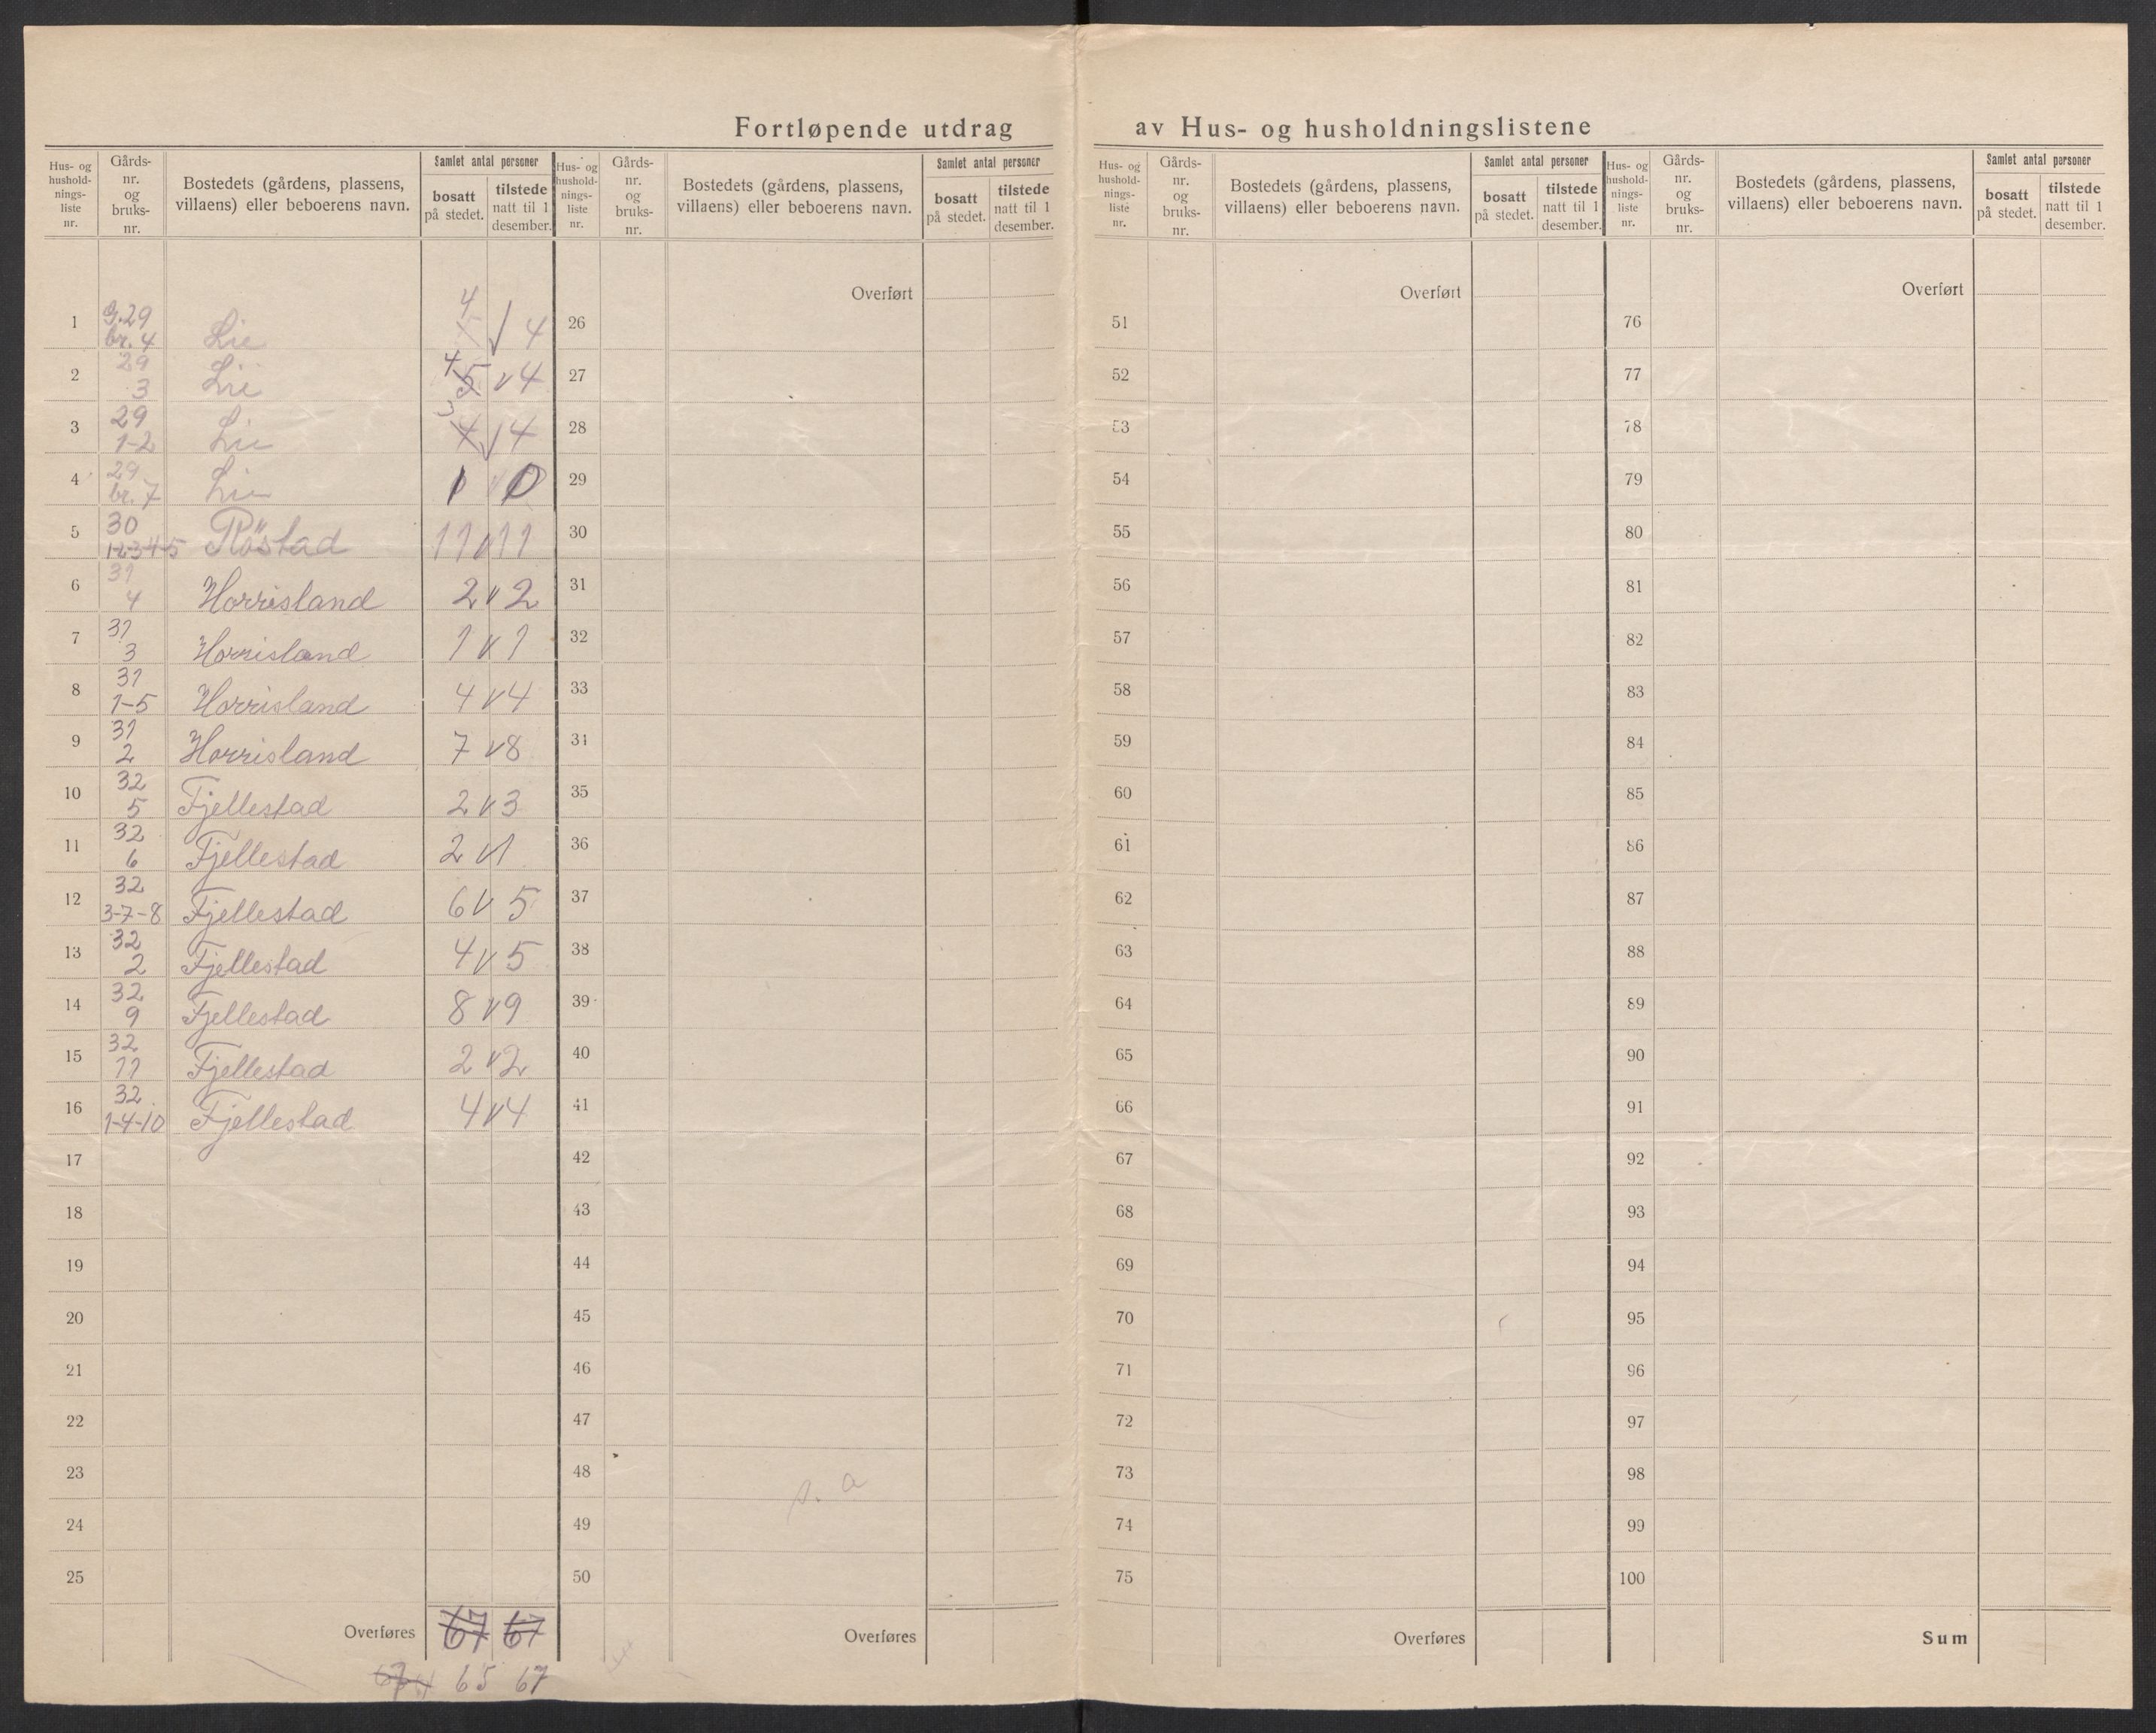 Fortløpende utdrag av Hus- og husholdningslistene
Hus- og husholdnings-liste nr. Gårds-nr. og bruks-nr. Bostedets (gårdens, plassens, villaens) eller beboerens navn. Samlet antal personer bosatt på stedet. tilstede natt til 1 desember.
Hus- og husholdnings-liste nr. Gårds-nr. og bruks-nr. Bostedets (gårdens, plassens, villaens) eller beboerens navn. Samlet antal personer bosatt på stedet. tilstede natt til 1 desember.
Hus- og husholdnings-liste nr. Gårds-nr. og bruks-nr. Bostedets (gårdens, plassens, villaens) eller beboerens navn. Samlet antal personer bosatt på stedet. tilstede natt til 1 desember.
Hus- og husholdnings-liste nr. Gårds-nr. og bruks-nr. Bostedets (gårdens, plassens, villaens) eller beboerens navn. Samlet antal personer bosatt på stedet. tilstede natt til 1 desember.
1 g.29 br.4 Lie 4 √ 4
2 29 3 Lie 4 5 v 4
3 29 1-2 Lie 3 4 √ 4
4 29 br. 7 Lie 1 v 0
5 30 1-2-3-4-5 Röstad 11 v 11
6 31 4 Horrisland 2 v 2
7 31 3 Horrisland 1 v 1
8 31 1-5 Horrisland 4 v 4
9 31 2 Horrisland 7 v 8
10 32 5 Fjellestad 2 v 3
11 32 6 Fjellestad 2 v 1
12 32 3-7-8 Fjellestad 6 v 5
13 32 2 Fjellestad 4 v 5
14 32 9 Fjellestad 8 v 9
15 32 11 Fjellestad 2 v 2
16 32 1-4-10 Fjellestad 4 v 4
17
18
19
20
21
22
23
24
25
Overføres 67 67
65 67
Overført
26
27
28
29
30
31
32
33
34
35
36
37
38
39
40
41
42
43
44
45
46
47
48
49
50
Overføres
Overført
51
52
53
54
55
56
57
58
59
60
61
62
63
64
65
66
67
68
69
70
71
72
73
74
75
Overføres
Overført
76
77
78
79
80
81
82
83
84
85
86
87
88
89
90
91
92
93
94
95
96
97
98
99
100
Sum